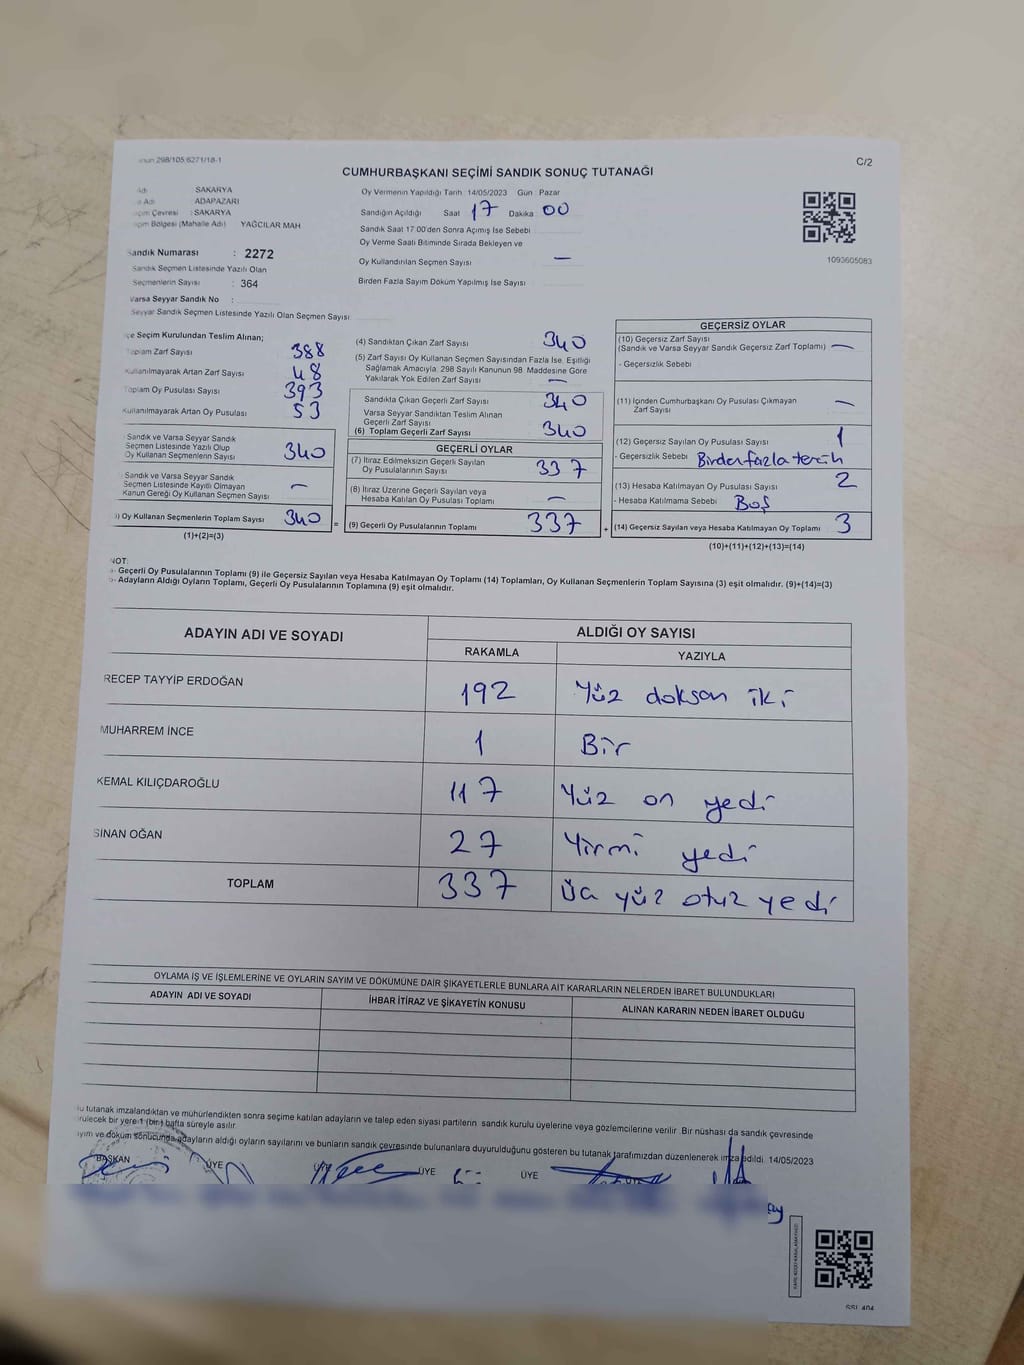 298/105,6271/18-1
C/2
CUMHURBAŞKANI SEÇİMİ SANDIK SONUÇ TUTANAĞI
Adı : SAKARYA
Adı : ADAPAZARI
Çevresi : SAKARYA
Bölgesi (Mahalle Adı) YAĞCILAR MAH
Sandık Numarası : 2272
Sandık Seçmen Listesinde Yazılı Olan
Seçmenlerin Sayısı : 364
Varsa Seyyar Sandık No :
Seyyar Sandık Seçmen Listesinde Yazılı Olan Seçmen Sayısı
Oy Vermenin Yapıldığı Tarih 14/05/2023 Gün Pazar
Sandığın Açıldığı Saat 17 Dakika 00
Sandık Saat 17:00'den Sonra Açımış İse Sebebi
Oy Verme Saati Bitiminde Sırada Bekleyen ve
Oy Kullandırılan Seçmen Sayısı —
Birden Fazla Sayım Döküm Yapılmış İse Sayısı
1093605083
Seçim Kurulundan Teslim Alınan;
Toplam Zarf Sayısı 388
Kullanılmayarak Artan Zarf Sayısı 48
Toplam Oy Pusulası Sayısı 393
Kullanılmayarak Artan Oy Pusulası 53
Sandık ve Varsa Seyyar Sandık
Seçmen Listesinde Yazılı Olup
Oy Kullanan Seçmenlerin Sayısı 340
Sandık ve Varsa Seyyar Sandık
Seçmen Listesinde Kayıtlı Olmayan
Kanun Gereği Oy Kullanan Seçmen Sayısı —
Oy Kullanan Seçmenlerin Toplam Sayısı 340 =
(1)+(2)=(3)
(4) Sandıktan Çıkan Zarf Sayısı 340
(5) Zarf Sayısı Oy Kullanan Seçmen Sayısından Fazla İse, Eşitliği
Sağlamak Amacıyla, 298 Sayılı Kanunun 98. Maddesine Göre
Yakılarak Yok Edilen Zarf Sayısı —
Sandıkta Çıkan Geçerli Zarf Sayısı 340
Varsa Seyyar Sandıktan Teslim Alınan
Geçerli Zarf Sayısı
(6) Toplam Geçerli Zarf Sayısı 340
GEÇERLİ OYLAR
(7) İtiraz Edilmeksizin Geçerli Sayılan
Oy Pusulalarının Sayısı 337
(8) İtiraz Üzerine Geçerli Sayılan veya
Hesaba Katılan Oy Pusulası Toplamı —
(9) Geçerli Oy Pusulalarının Toplamı 337 +
GEÇERSİZ OYLAR
(10) Geçersiz Zarf Sayısı
(Sandık ve Varsa Seyyar Sandık Geçersiz Zarf Toplamı) —
- Geçersizlik Sebebi
(11) İçinden Cumhurbaşkanı Oy Pusulası Çıkmayan
Zarf Sayısı —
(12) Geçersiz Sayılan Oy Pusulası Sayısı 1
- Geçersizlik Sebebi Birden fazla tercih
(13) Hesaba Katılmayan Oy Pusulası Sayısı 2
- Hesaba Katılmama Sebebi Boş
(14) Geçersiz Sayılan veya Hesaba Katılmayan Oy Toplamı 3
(10)+(11)+(12)+(13)=(14)
NOT:
- Geçerli Oy Pusulalarının Toplamı (9) ile Geçersiz Sayılan veya Hesaba Katılmayan Oy Toplamı (14) Toplamları, Oy Kullanan Seçmenlerin Toplam Sayısına (3) eşit olmalıdır. (9)+(14)=(3)
- Adayların Aldığı Oyların Toplamı, Geçerli Oy Pusulalarının Toplamına (9) eşit olmalıdır.
ADAYIN ADI VE SOYADI ALDIĞI OY SAYISI
RAKAMLA YAZIYLA
RECEP TAYYİP ERDOĞAN 192 Yüz doksan iki
MUHARREM İNCE 1 Bir
KEMAL KILIÇDAROĞLU 117 Yüz on yedi
SİNAN OĞAN 27 Yirmi yedi
TOPLAM 337 Üç yüz otuz yedi
OYLAMA İŞ VE İŞLEMLERİNE VE OYLARIN SAYIM VE DÖKÜMÜNE DAİR ŞİKAYETLERLE BUNLARA AİT KARARLARIN NELERDEN İBARET BULUNDUKLARI
ADAYIN ADI VE SOYADI İHBAR İTİRAZ VE ŞİKAYETİN KONUSU ALINAN KARARIN NEDEN İBARET OLDUĞU
tutanak imzalandıktan ve mühürlendikten sonra seçime katılan adayların ve talep eden siyasi partilerin sandık kurulu üyelerine veya gözlemcilerine verilir. Bir nüshası da sandık çevresinde
bir yere 1 (bir) hafta süreyle asılır.
ve döküm sonucunda adayların aldığı oyların sayılarını ve bunların sandık çevresinde bulunanlara duyurulduğunu gösteren bu tutanak tarafımızdan düzenlenerek imza edildi. 14/05/2023
BAŞKAN ÜYE ÜYE ÜYE